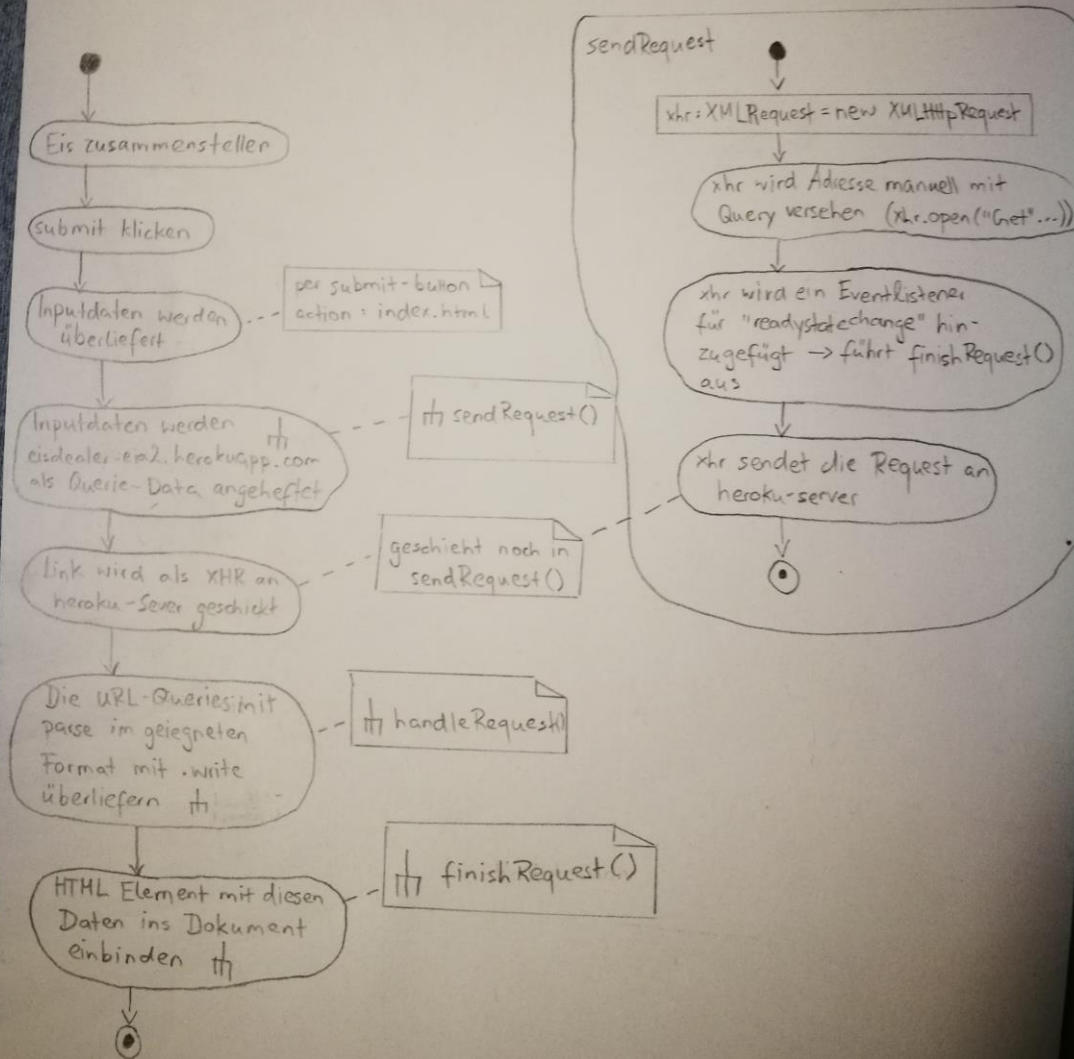 Eis zusammensteller
submit klicken
Inputdaten werden
überliefert
per submit-button
action: index.html
Inputdaten werden
eisdealer-eia2.herokuapp.com
als Querie-Data angeheftet
sendRequest()
Link wird als XHR an
heroku-Sever geschickt
geschieht noch in
sendRequest()
Die URL-Queries mit
parse im geiegneten
Format mit .write
überliefern
handleRequest()
HTML Element mit diesen
Daten ins Dokument
einbinden
finishRequest()
sendRequest
xhr: XMLRequest = new XMLHttpRequest
xhr wird Adresse manuell mit
Query versehen (xhr.open("Get"...))
xhr wird ein Eventlistener
für "readystatechange" hin-
zugefügt → führt finishRequest()
aus
xhr sendet die Request an
heroku-server